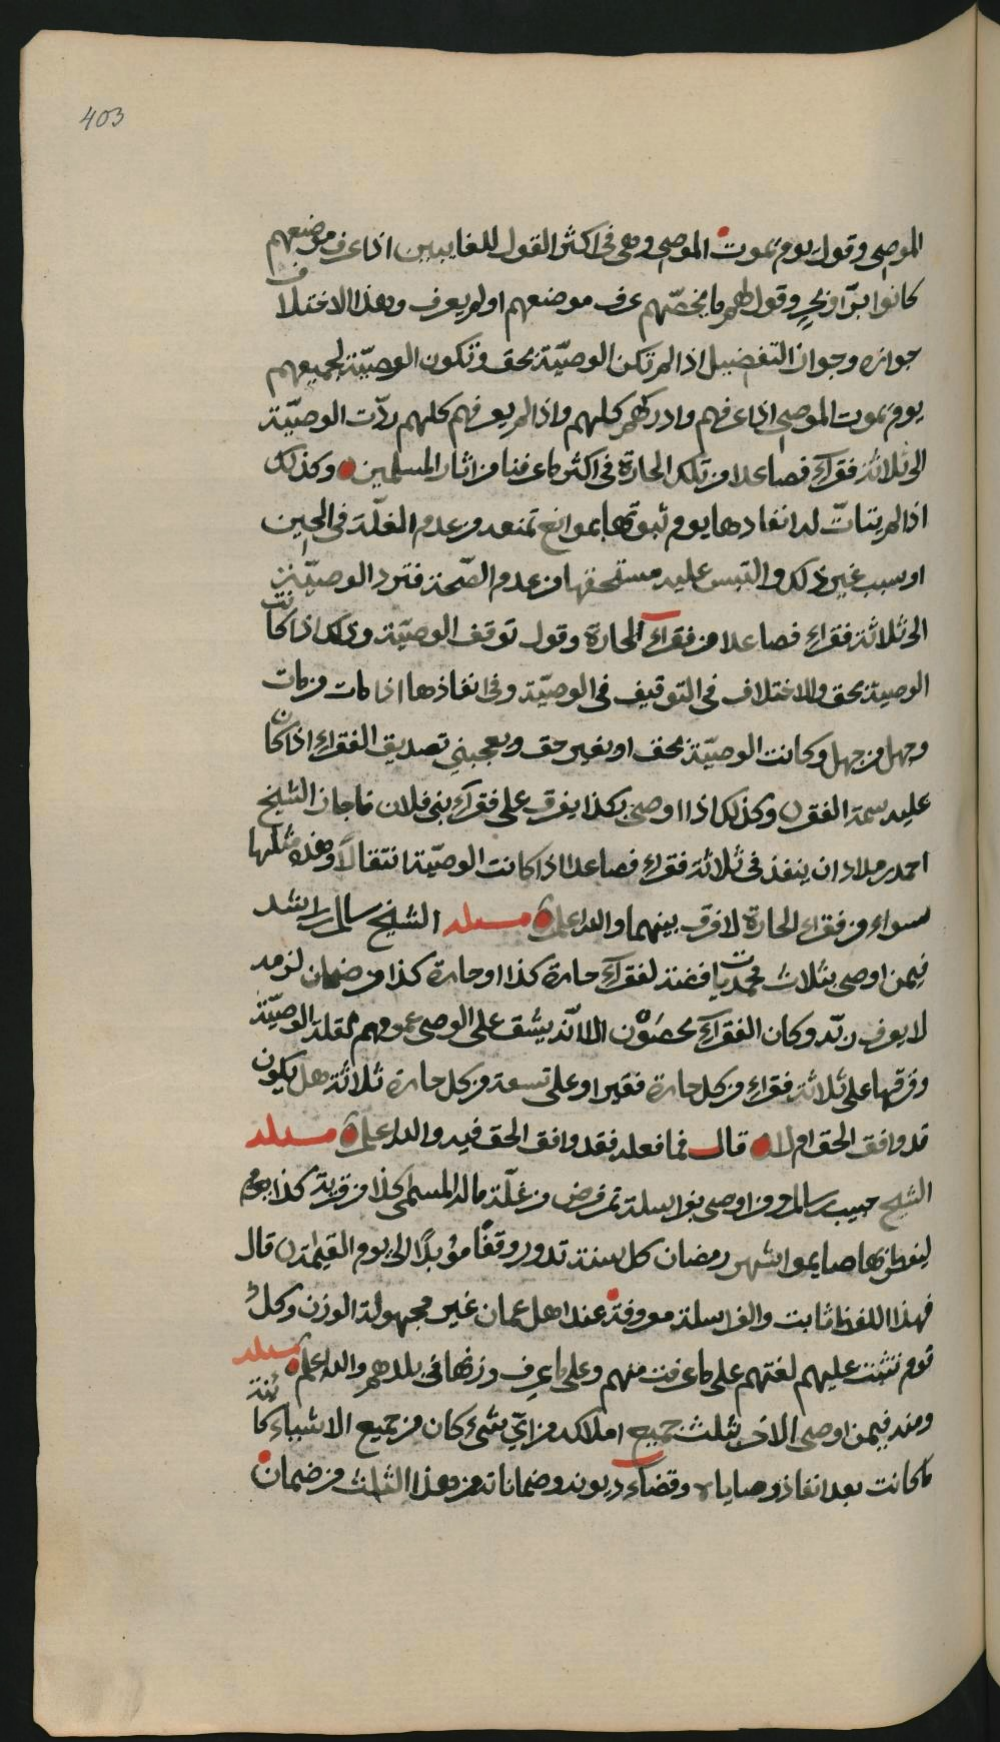 403
الموصي وقول يوم يموت الموصي وهي في اكثر القول للغايبين اذا عرف موضعهم
كانوا برّا او بحرٍ وقول لهم ما يخصّهم عرف موضعهم او لم يعرف وهذا الاختلاف
جوازه وجواز التفضيل اذا لم تكن الوصيّة بحق وتكون الوصيّة لجميعهم
يوم يموت الموصي اذا عرفهم وادركهم كلهم واذا لم يعرفهم كلهم ردّت الوصيّة
الى ثلاثة فقرآء فصاعدا من تلك الحارة في اكثر ما عرفنا من اثار المسلمين وكذلك
اذا لم يتاتّ له انفاذها يوم ثبوتها بموانع تمنعه من عدم الغلّة في الحين
او سبب غير ذلك والتبس عليه مستحقها من عدم الصّحة فترد الوصيّة
الى ثلاثة فقراء فصاعدا من فقرآء الحارة وقول توقف الوصيّة وذلك اذا كانت
الوصية بحق والاختلاف في التوقيف في الوصيّة وفي انفاذها اذا مات من مات
وجهل من جهل وكانت الوصيّة بحق او بغير حق ويعجبني تصديق الفقراء اذا كان
عليه سمة الفقر وكذلك اذا اوصى بكذا يفرق على فقرآء بني فلان فاجاز الشيخ
احمد بن مداد ان ينفذ في ثلاثة فقراء فصاعدا اذا كانت الوصيّة انتقالاً وهذه مثلها
سواء من فقراء الحارة لا فرق بينهما والله اعلم مسئلة الشيخ سالم بن راشد
فيمن اوصى بثلاث محمديات فضة لفقرآء حارة كذا او حارة كذا من ضمان لزمه
لا يعرف ربّه وكان الفقرآء يحصَوْن الا انّه يشق على الوصي عمومهم لقلة الوصيّة
وفرقها على ثلاثة فقراء من كل حارة فقيرا او على تسعة من كل حارة ثلاثة هل يكون
قد وافق الحق ام لا قال فما فعله فقد وافق الحق فيه والله اعلم مسئلة
الشيخ حبيب بن سالم ومن اوصى بفراسلة تمر فرض من غلّة ماله المسمى كذا من قرية كذا يوم
ليفطر بها صايموا شهر رمضان كل سنة تدور وقفًا مؤبدًا الى يوم القيمة قال
فهذا اللفظ ثابت والفراسلة معروفة عند اهل عمان غير مجهولة الوزن وكلُّ
قوم تثبت عليهم لغتهم على ما عرفت منهم وعلى ما عرف وزنها في بلدهم والله اعلم مسئلة
ومنه فيمن اوصى الان بثلث جميع املاكه من ايّ شيء كان من جميع الاشياء كائنة
ما كانت بعد انفاذ وصاياه وقضاء ديونه وضماناته من هذا الثلث من ضمان